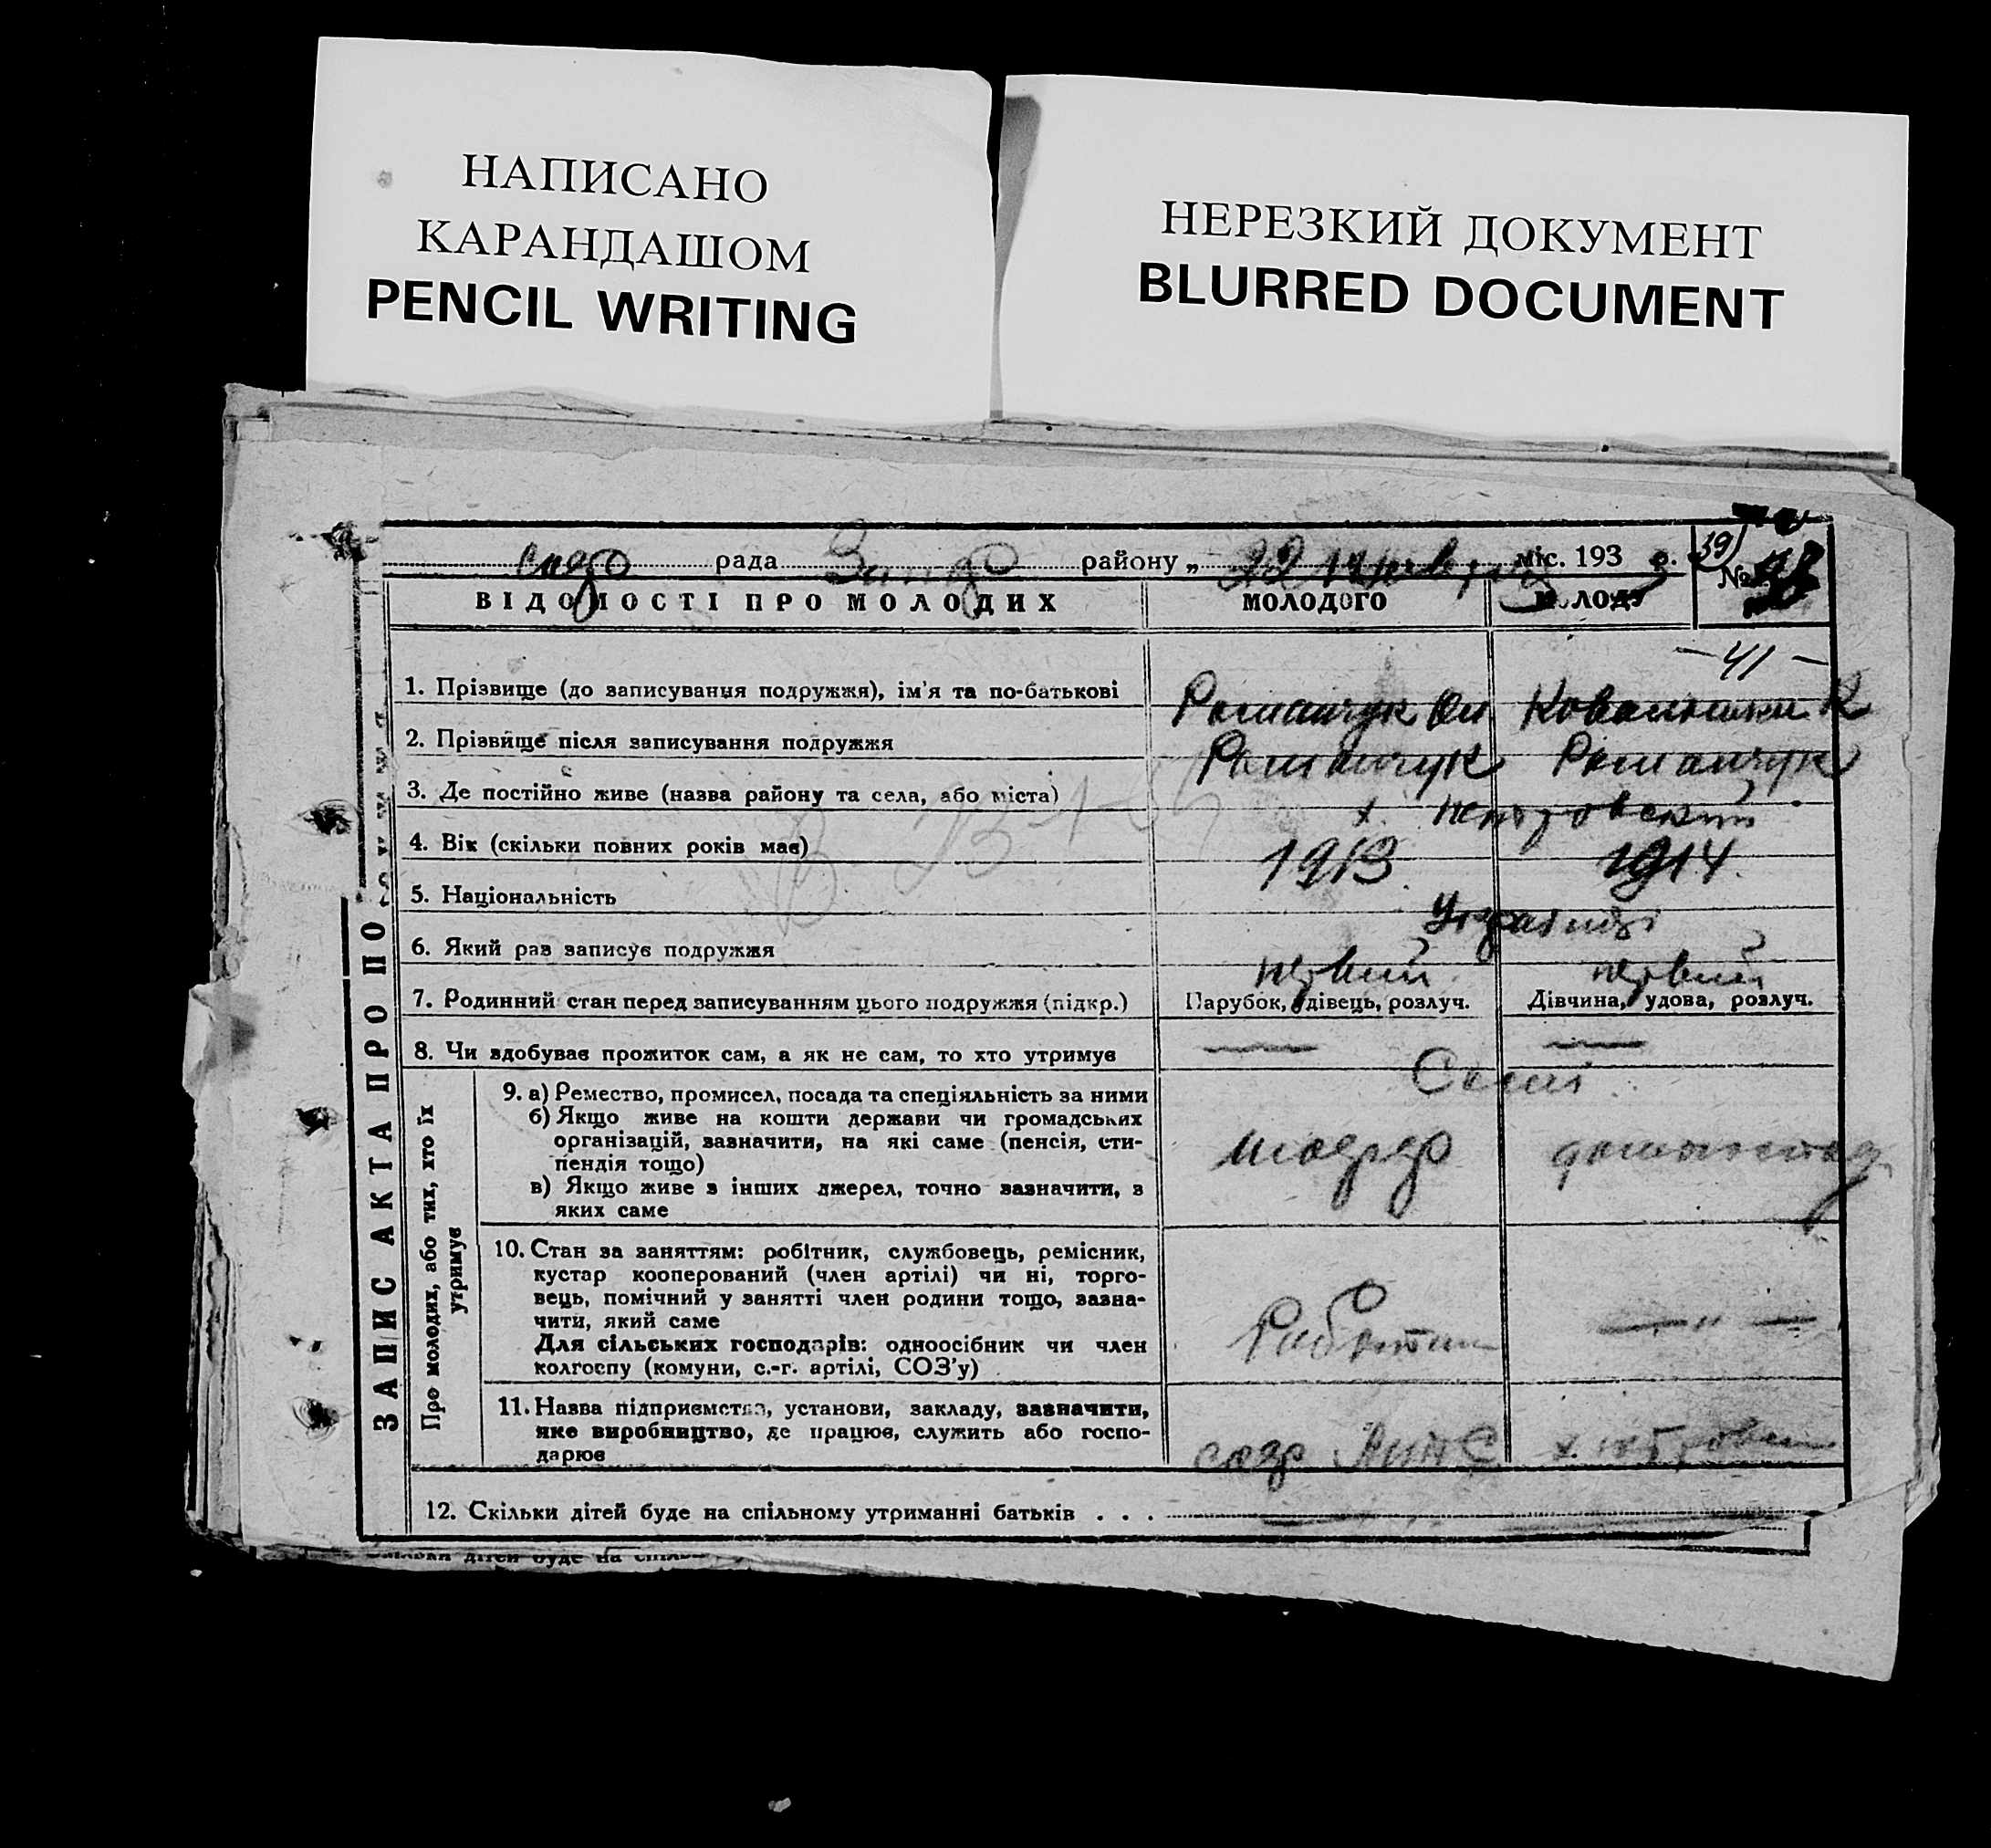 НАПИСАНО
КАРАНДАШОМ
PENCIL WRITING
НЕРЕЗКИЙ ДОКУМЕНТ
BLURRED DOCUMENT
рада району „ 22 міс. 193 р. 39
№
ВІДОМОСТІ ПРО МОЛОДИХ МОЛОДОГО МОЛОДУ
— 41 —
1. Прізвище (до записування подружжя), ім'я та по-батькові Романчук
2. Прізвище після записування подружжя Романчук Романчук
3. Де постійно живе (назва району та села, або міста) х.
4. Вік (скільки повних років має) 1913 1914
5. Національність Українці
6. Який раз записує подружжя первий первий
7. Родинний стан перед записуванням цього подружжя (підкр.) Парубок, вдівець, розлуч. Дівчина, удова, розлуч.
8. Чи здобуває прожиток сам, а як не сам, то хто утримує Самі
ЗАПИС АКТА ПРО ПО
Про молодих, або тих, хто їх
утримує
9. а) Ремество, промисел, посада та спеціяльність за ними
б) Якщо живе на кошти держави чи громадських
організацій, зазначити, на які саме (пенсія, сти-
пендія тощо)
в) Якщо живе з інших джерел, точно зазначити, з
яких саме
шофер
10. Стан за заняттям: робітник, службовець, ремісник,
кустар кооперований (член артілі) чи ні, торго-
вець, помічний у занятті член родини тощо, зазна-
чити, який саме
Для сільських господарів: одноосібник чи член
колгоспу (комуни, с.-г. артілі, СОЗ'у)
— " —
11. Назва підприємства, установи, закладу, зазначити,
яке виробництво, де працює, служить або госпо-
дарює
12. Скільки дітей буде на спільному утриманні батьків . . .